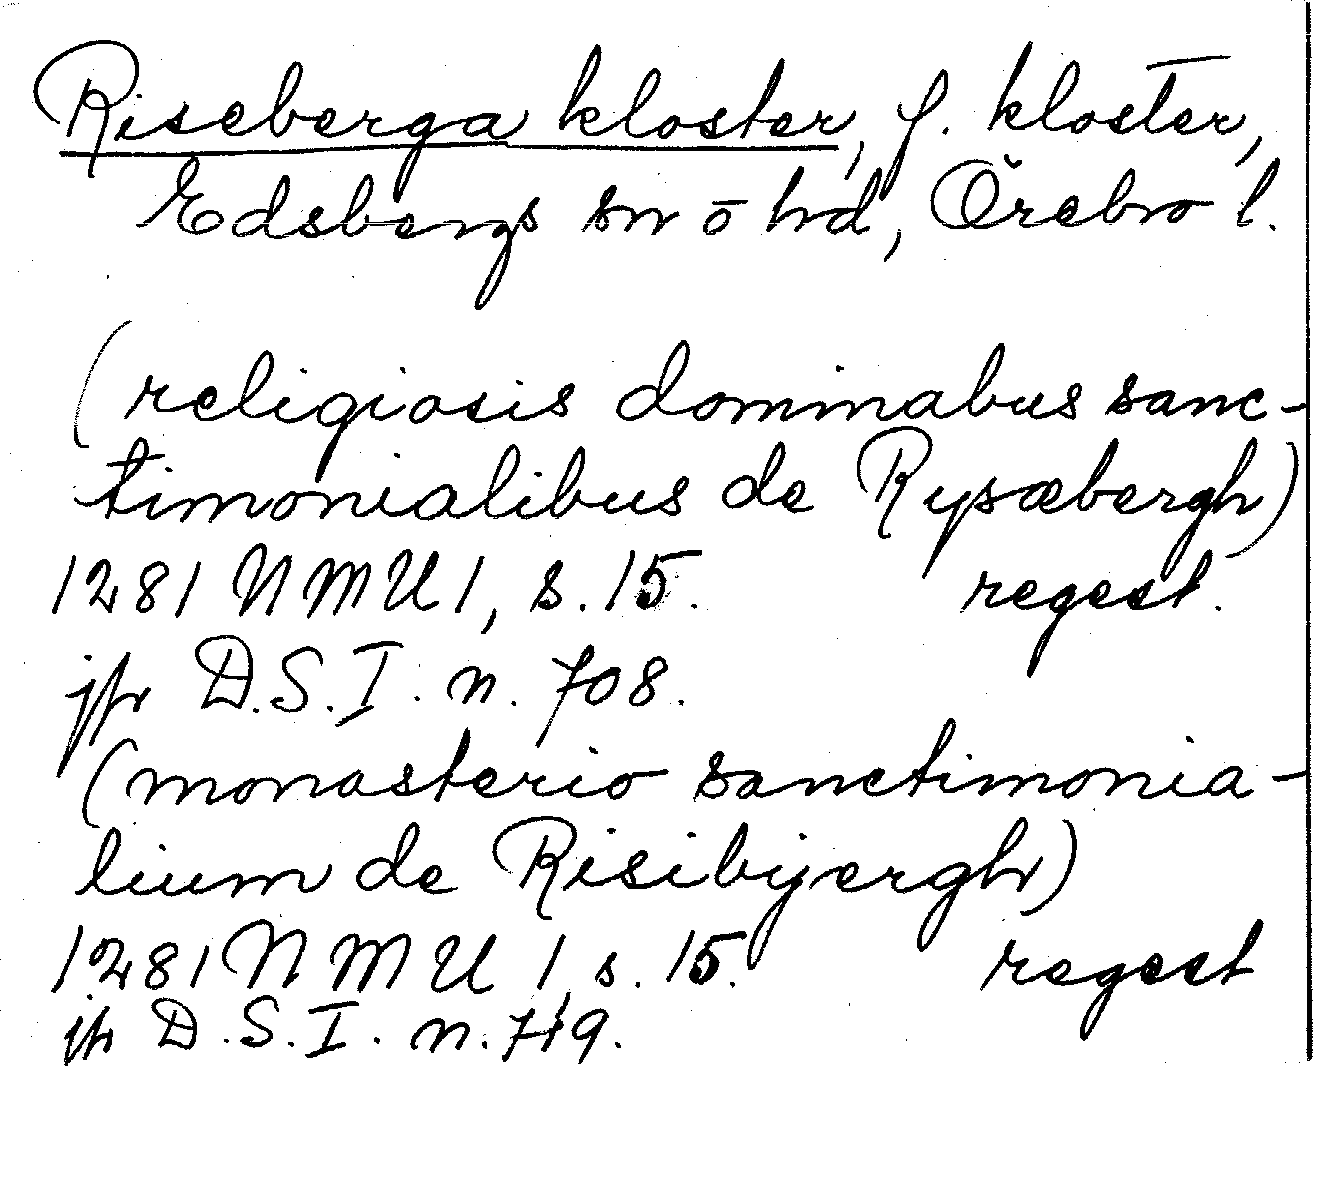 Riseberga kloster, f. kloster,
Edsbergs sn o hd, Örebro l.
(religiosis dominabus sanc-
timonialibus de Rysæbergh)
1281 NMU 1, s. 15. regest.
jfr D.S.I. n. 708.
(monasterio sanctimonia-
lium de Risibyergh)
1281 NMU 1, s. 15. regest
jfr D.S.I. n. 719.